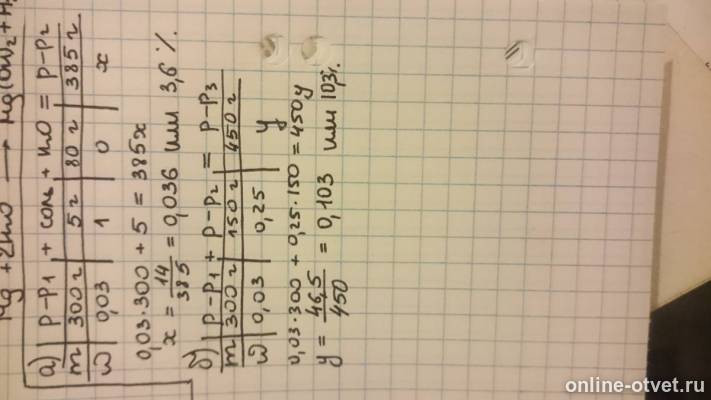 Mg + 2H2O → Mg(OH)2 + H
а) | р-р1 + соль + H2O = р-р2
m | 300 г | 5 г | 80 г | 385 г
ω | 0,03 | 1 | 0 | x
0,03·300 + 5 = 385x
x = 14/385 = 0,036 или 3,6 %.
б) | р-р1 + р-р2 = р-р3
m | 300 г | 150 г | 450 г
ω | 0,03 | 0,25 | y
0,03·300 + 0,25·150 = 450y
y = 46,5/450 = 0,103 или 10,3%.
online-otvet.ru